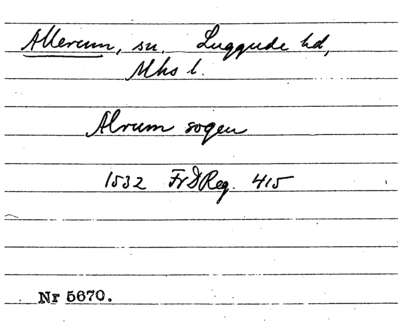 Allerum, sn. Luggude hd,
Mhs l.
Alrum sogen
1532 FrDReg. 415
Nr 5670.